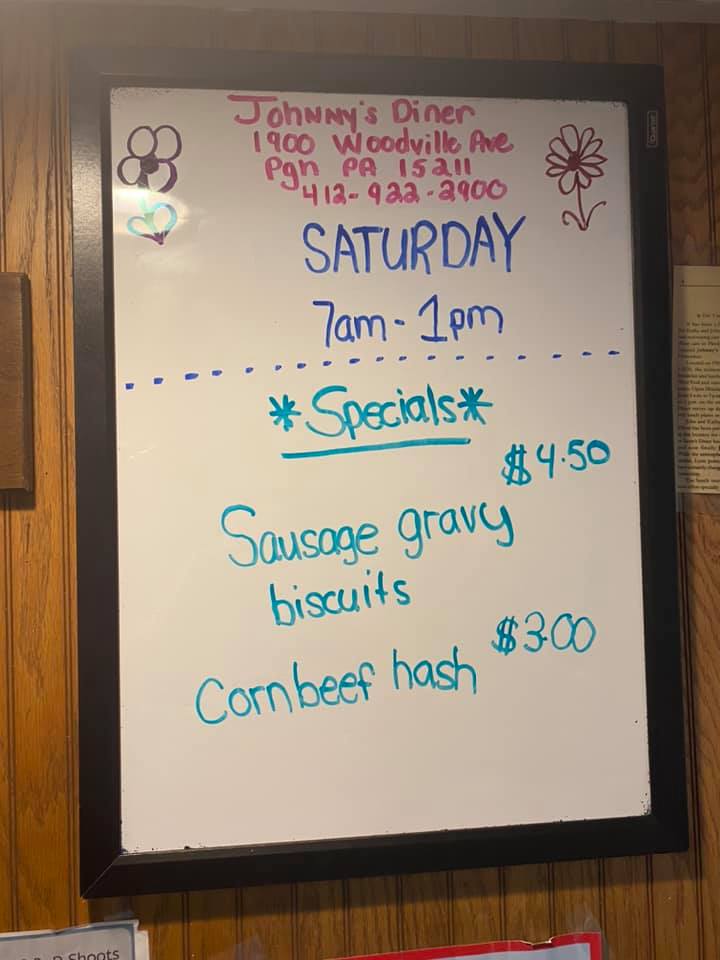 Johnny's Diner
1900 Woodville Ave
Pgh PA 15211
412-922-2900
SATURDAY
7am - 1pm
*Specials*
$4.50
Sausage gravy
biscuits
$3.00
Cornbeef hash
Shoots